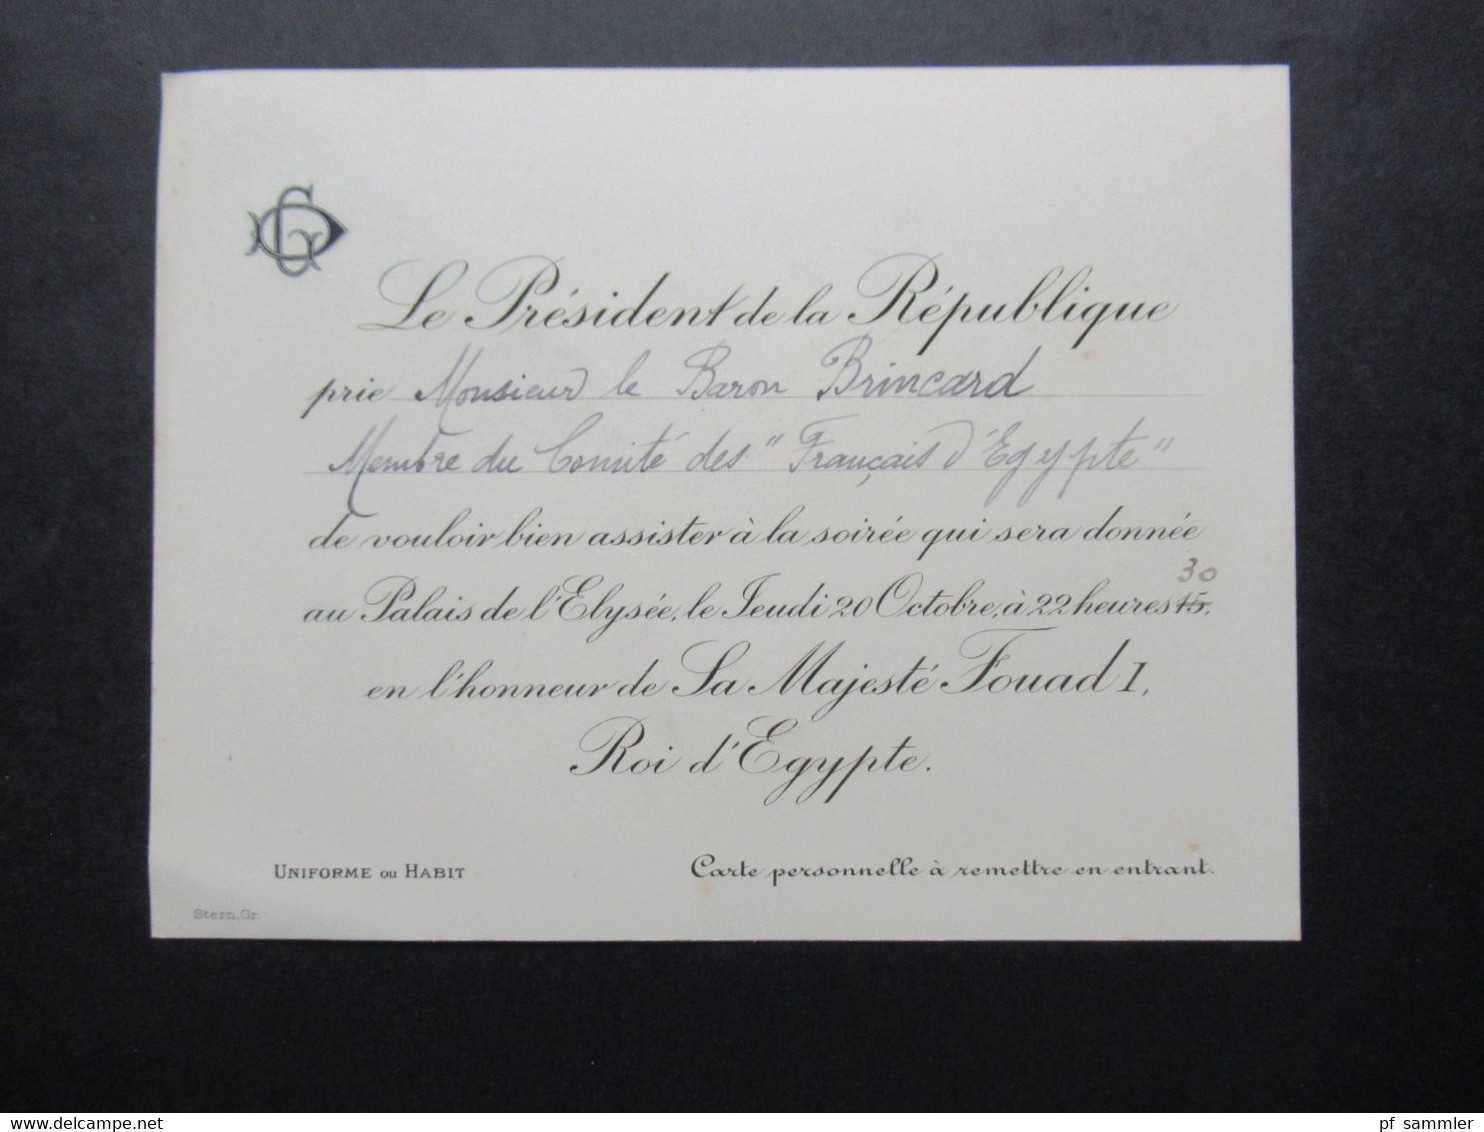 GD
Le Président de la République
prie Monsieur le Baron Brincard
Membre du Comité des "Français d'Egypte"
de vouloir bien assister à la soirée qui sera donnée
30
au Palais de l'Elysée, le Jeudi 20 Octobre, à 22 heures 15,
en l'honneur de Sa Majesté Fouad I,
Roi d'Egypte.
UNIFORME OU HABIT
Carte personnelle à remettre en entrant.
Stern. Gr.
www.delcampe.net
pf_sammler